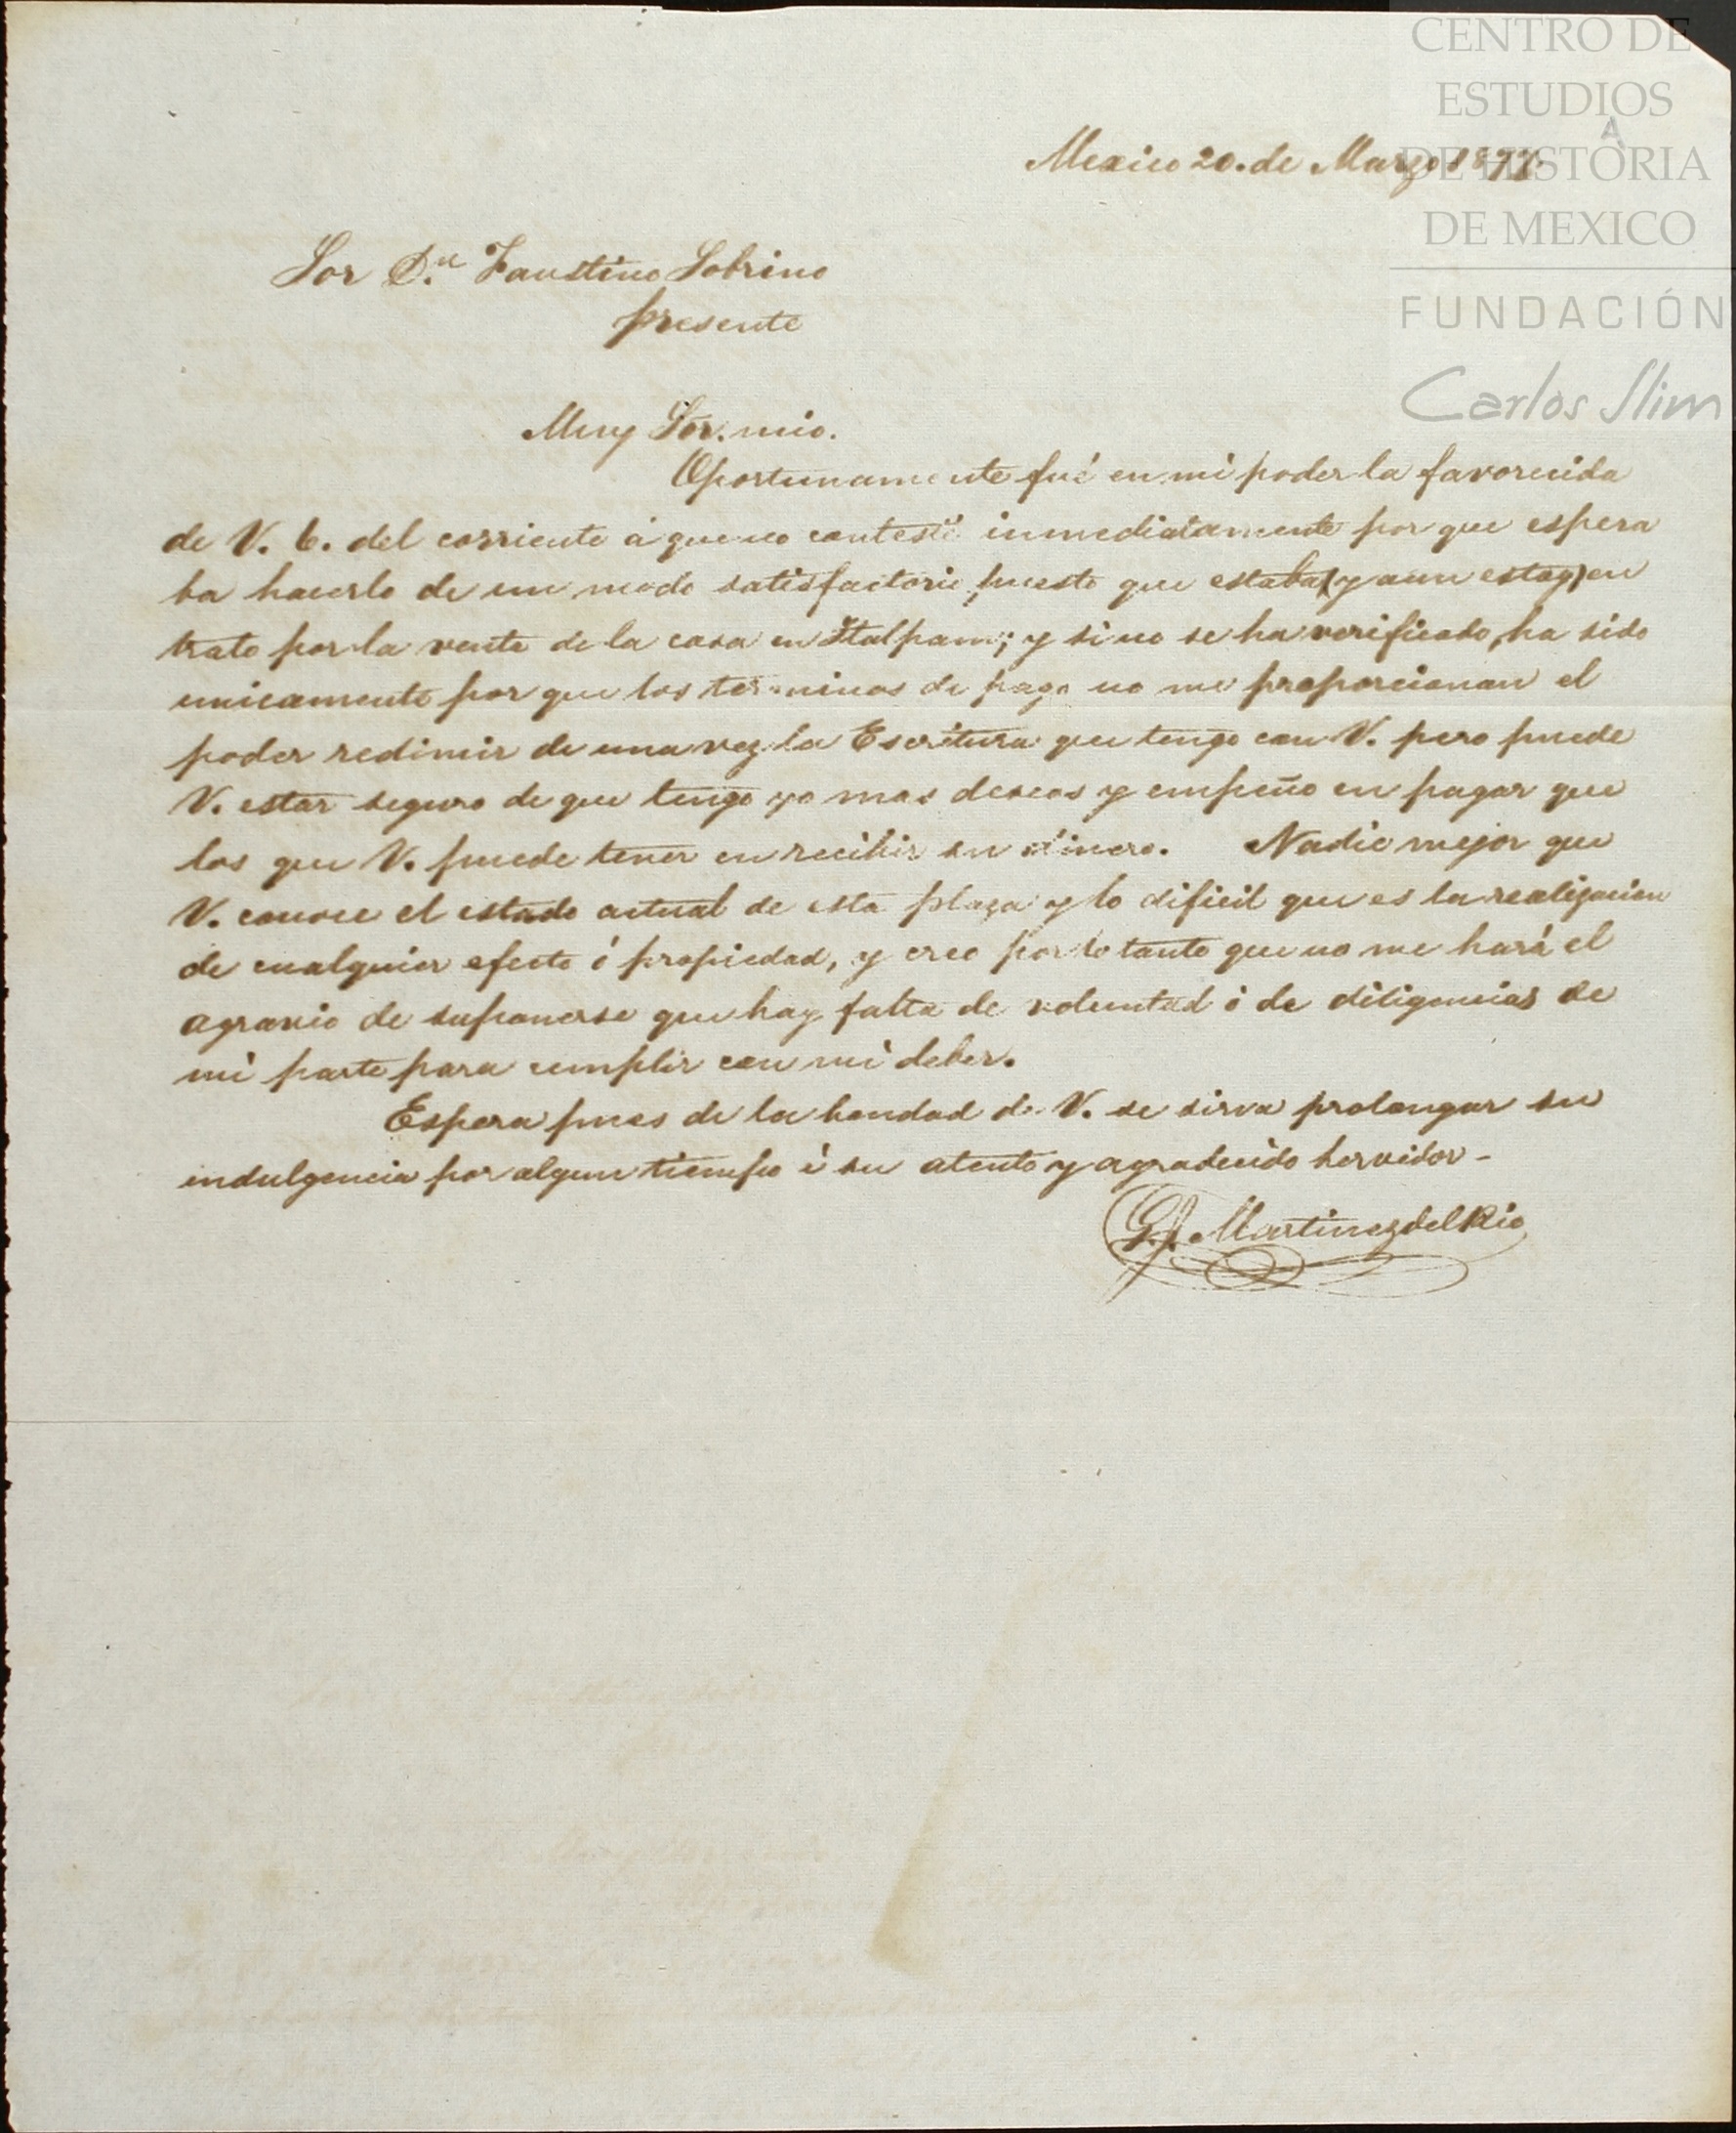 CENTRO DE
ESTUDIOS
DE HISTORIA
DE MEXICO
FUNDACIÓN
Carlos Slim
A
Mexico 20. de Marzo 1877.
Sor Dn Faustino Sobrino
presente
Muy Sor. mio.
Oportunamente fué en mi poder la favorecida
de V. 6. del corriente á que no contesté inmediatamente por que espera
ba hacerlo de un modo satisfactorio, puesto que estaba (y aun estoy) en
trato por la venta de la casa en Tlalpam; y si no se ha verificado, ha sido
unicamente por que los terminos de pago no me proporcionan el
poder redimir de una vez la Escritura que tengo con V. pero puede
V. estar seguro de que tengo yo mas deseos y empeño en pagar que
los que V. puede tener en recibir su dinero. Nadie mejor que
V. conoce el estado actual de esta plaza y lo dificil que es la realizacion
de cualquier efecto ó propiedad, y creo por lo tanto que no me hará el
agravio de suponerse que hay falta de voluntad ó de diligencias de
mi parte para cumplir con mi deber.
Espera pues de la bondad de V. se sirva prolongar su
indulgencia por algun tiempo á su atento y agradecido servidor -
G. Martinez del Rio